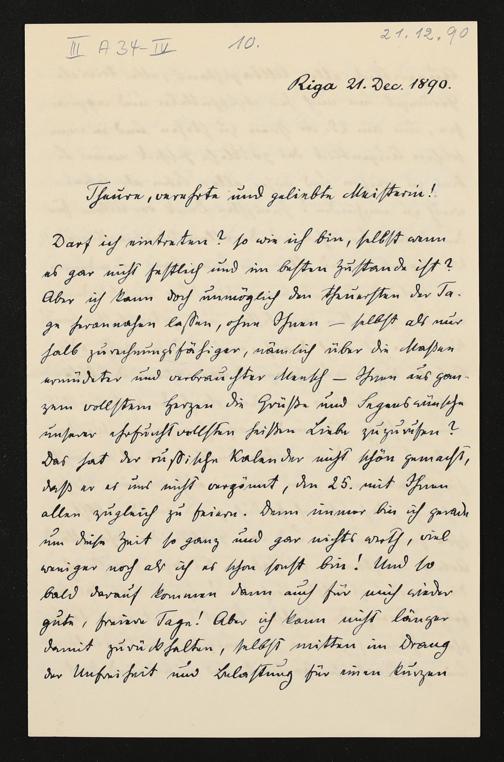 III A 34-IV
10.
21.12.90
Riga 21. Dec. 1890.
Theure, verehrte und geliebte Meisterin!
Darf ich eintreten? so wie ich bin, selbst wenn
es gar nicht festlich und im besten Zustande ist?
Aber ich kann doch unmöglich den theuersten der Ta-
ge herannahen lassen, ohne Ihnen — selbst als nur
halb zurechnungsfähiger, nämlich über die Maßen
ermüdeter und verbrauchter Mensch — Ihnen aus gan-
zem vollstem Herzen die Grüße und Segenswünsche
unserer ehrfurchtvollsten heißen Liebe zuzurufen?
Das hat der russische Kalender nicht schön gemacht,
daß er es uns nicht vergönnt, den 25. mit Ihnen
allen zugleich zu feiern. Denn immer bin ich gerade
um diese Zeit so ganz und gar nichts werth, viel
weniger noch als ich es schon sonst bin! Und so
bald darauf kommen dann auch für mich wieder
gute, freiere Tage! Aber ich kann nicht länger
damit zurückhalten, selbst mitten im Drang
der Unfreiheit und Belastung für einen kurzen